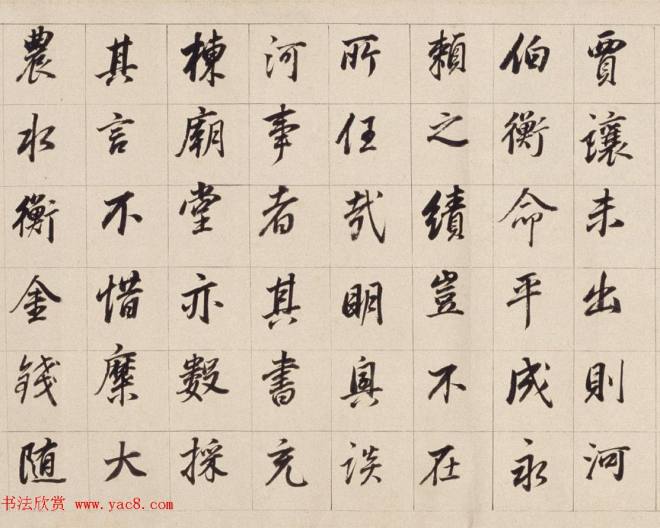 賈讓未出則河
伯衡命平成永
賴之績豈不在
所任哉明興談
河事者其書充
棟廟堂亦數採
其言不惜糜大
農水衡金錢随
书法欣赏 www.yac8.com